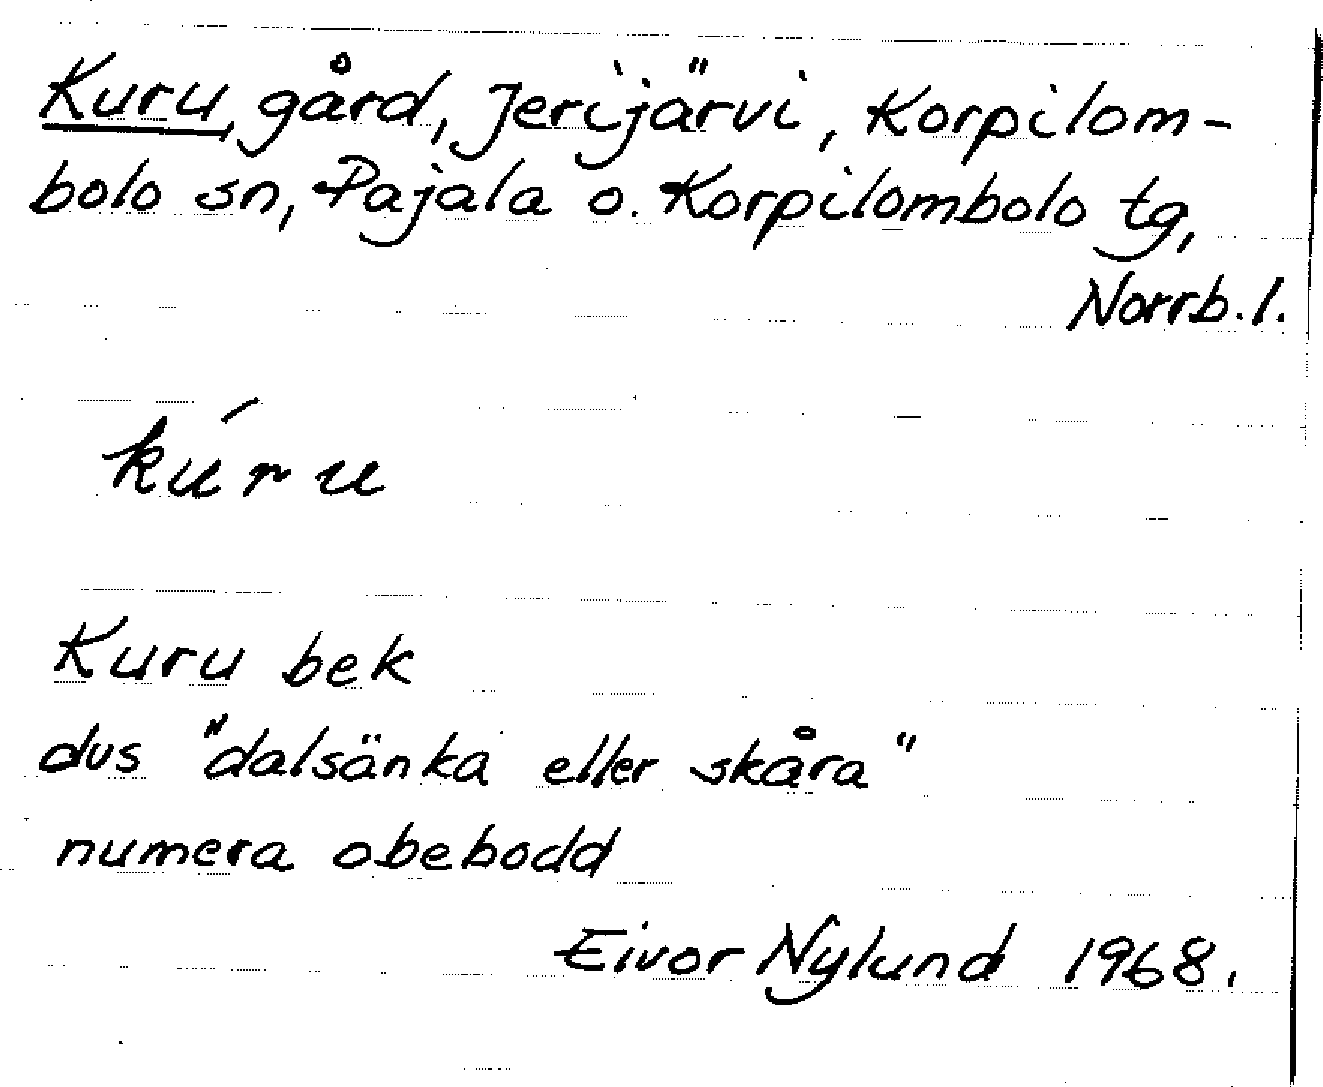 Kuru, gård, Jerijärvi, Korpilom-
bolo sn, Pajala o. Korpilombolo tg,
Norrb.l.
kúru
Kuru bek
dvs "dalsänka eller skåra"
numera obebodd
Eivor Nylund 1968.